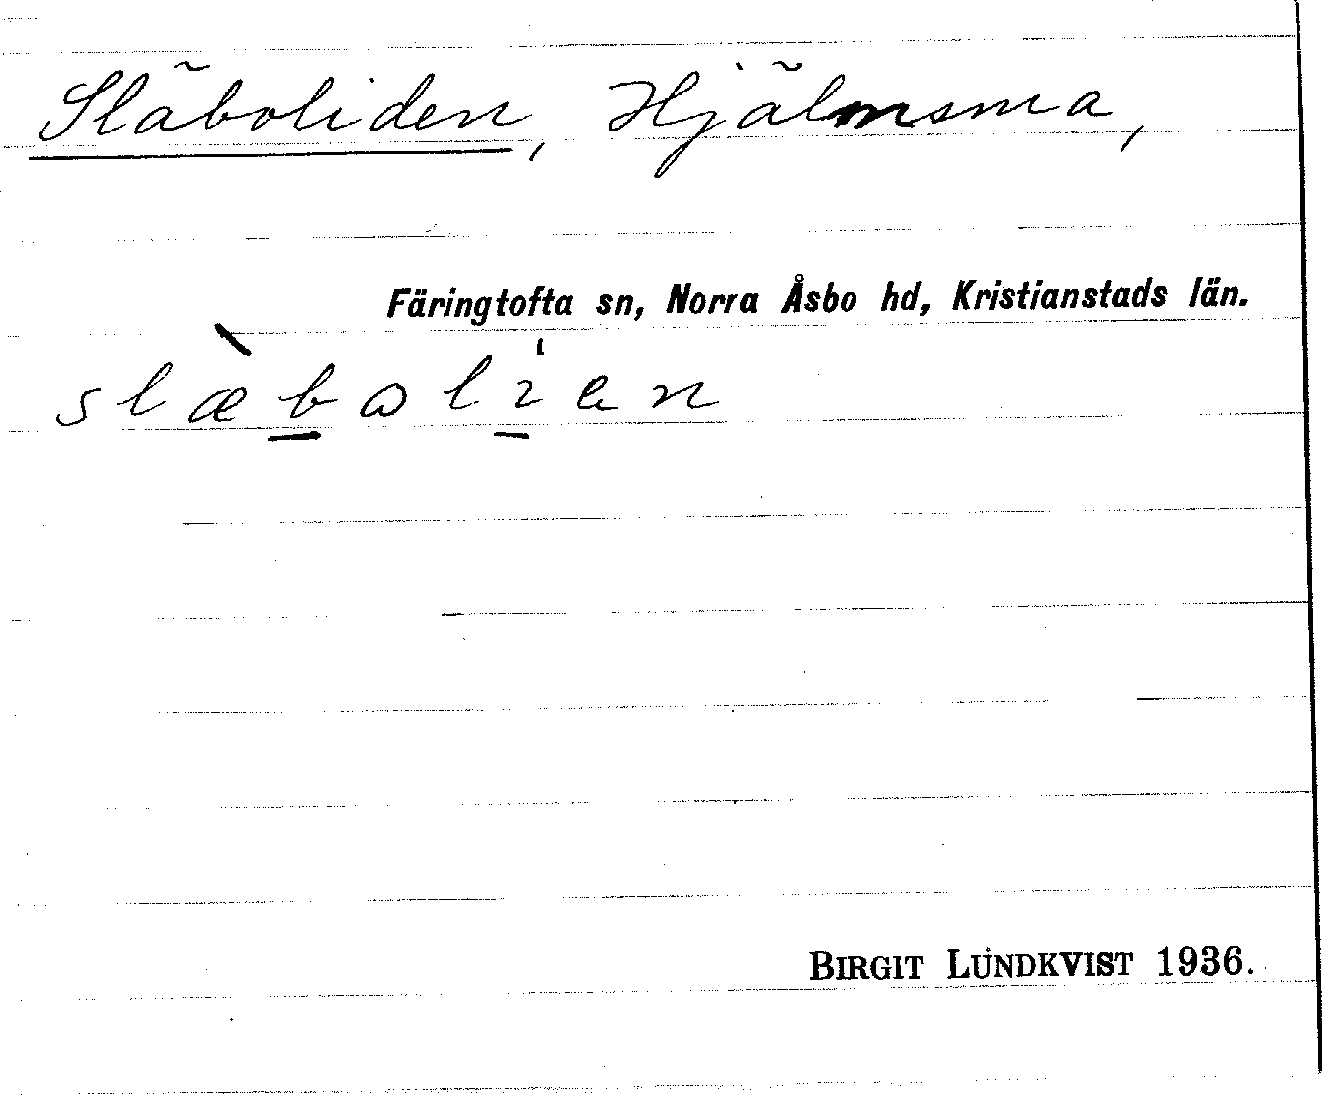 Släboliden, Hjälmsma,
Färingtofta sn, Norra Åsbo hd, Kristianstads län.
slæ̀bolíen
BIRGIT LUNDKVIST 1936.